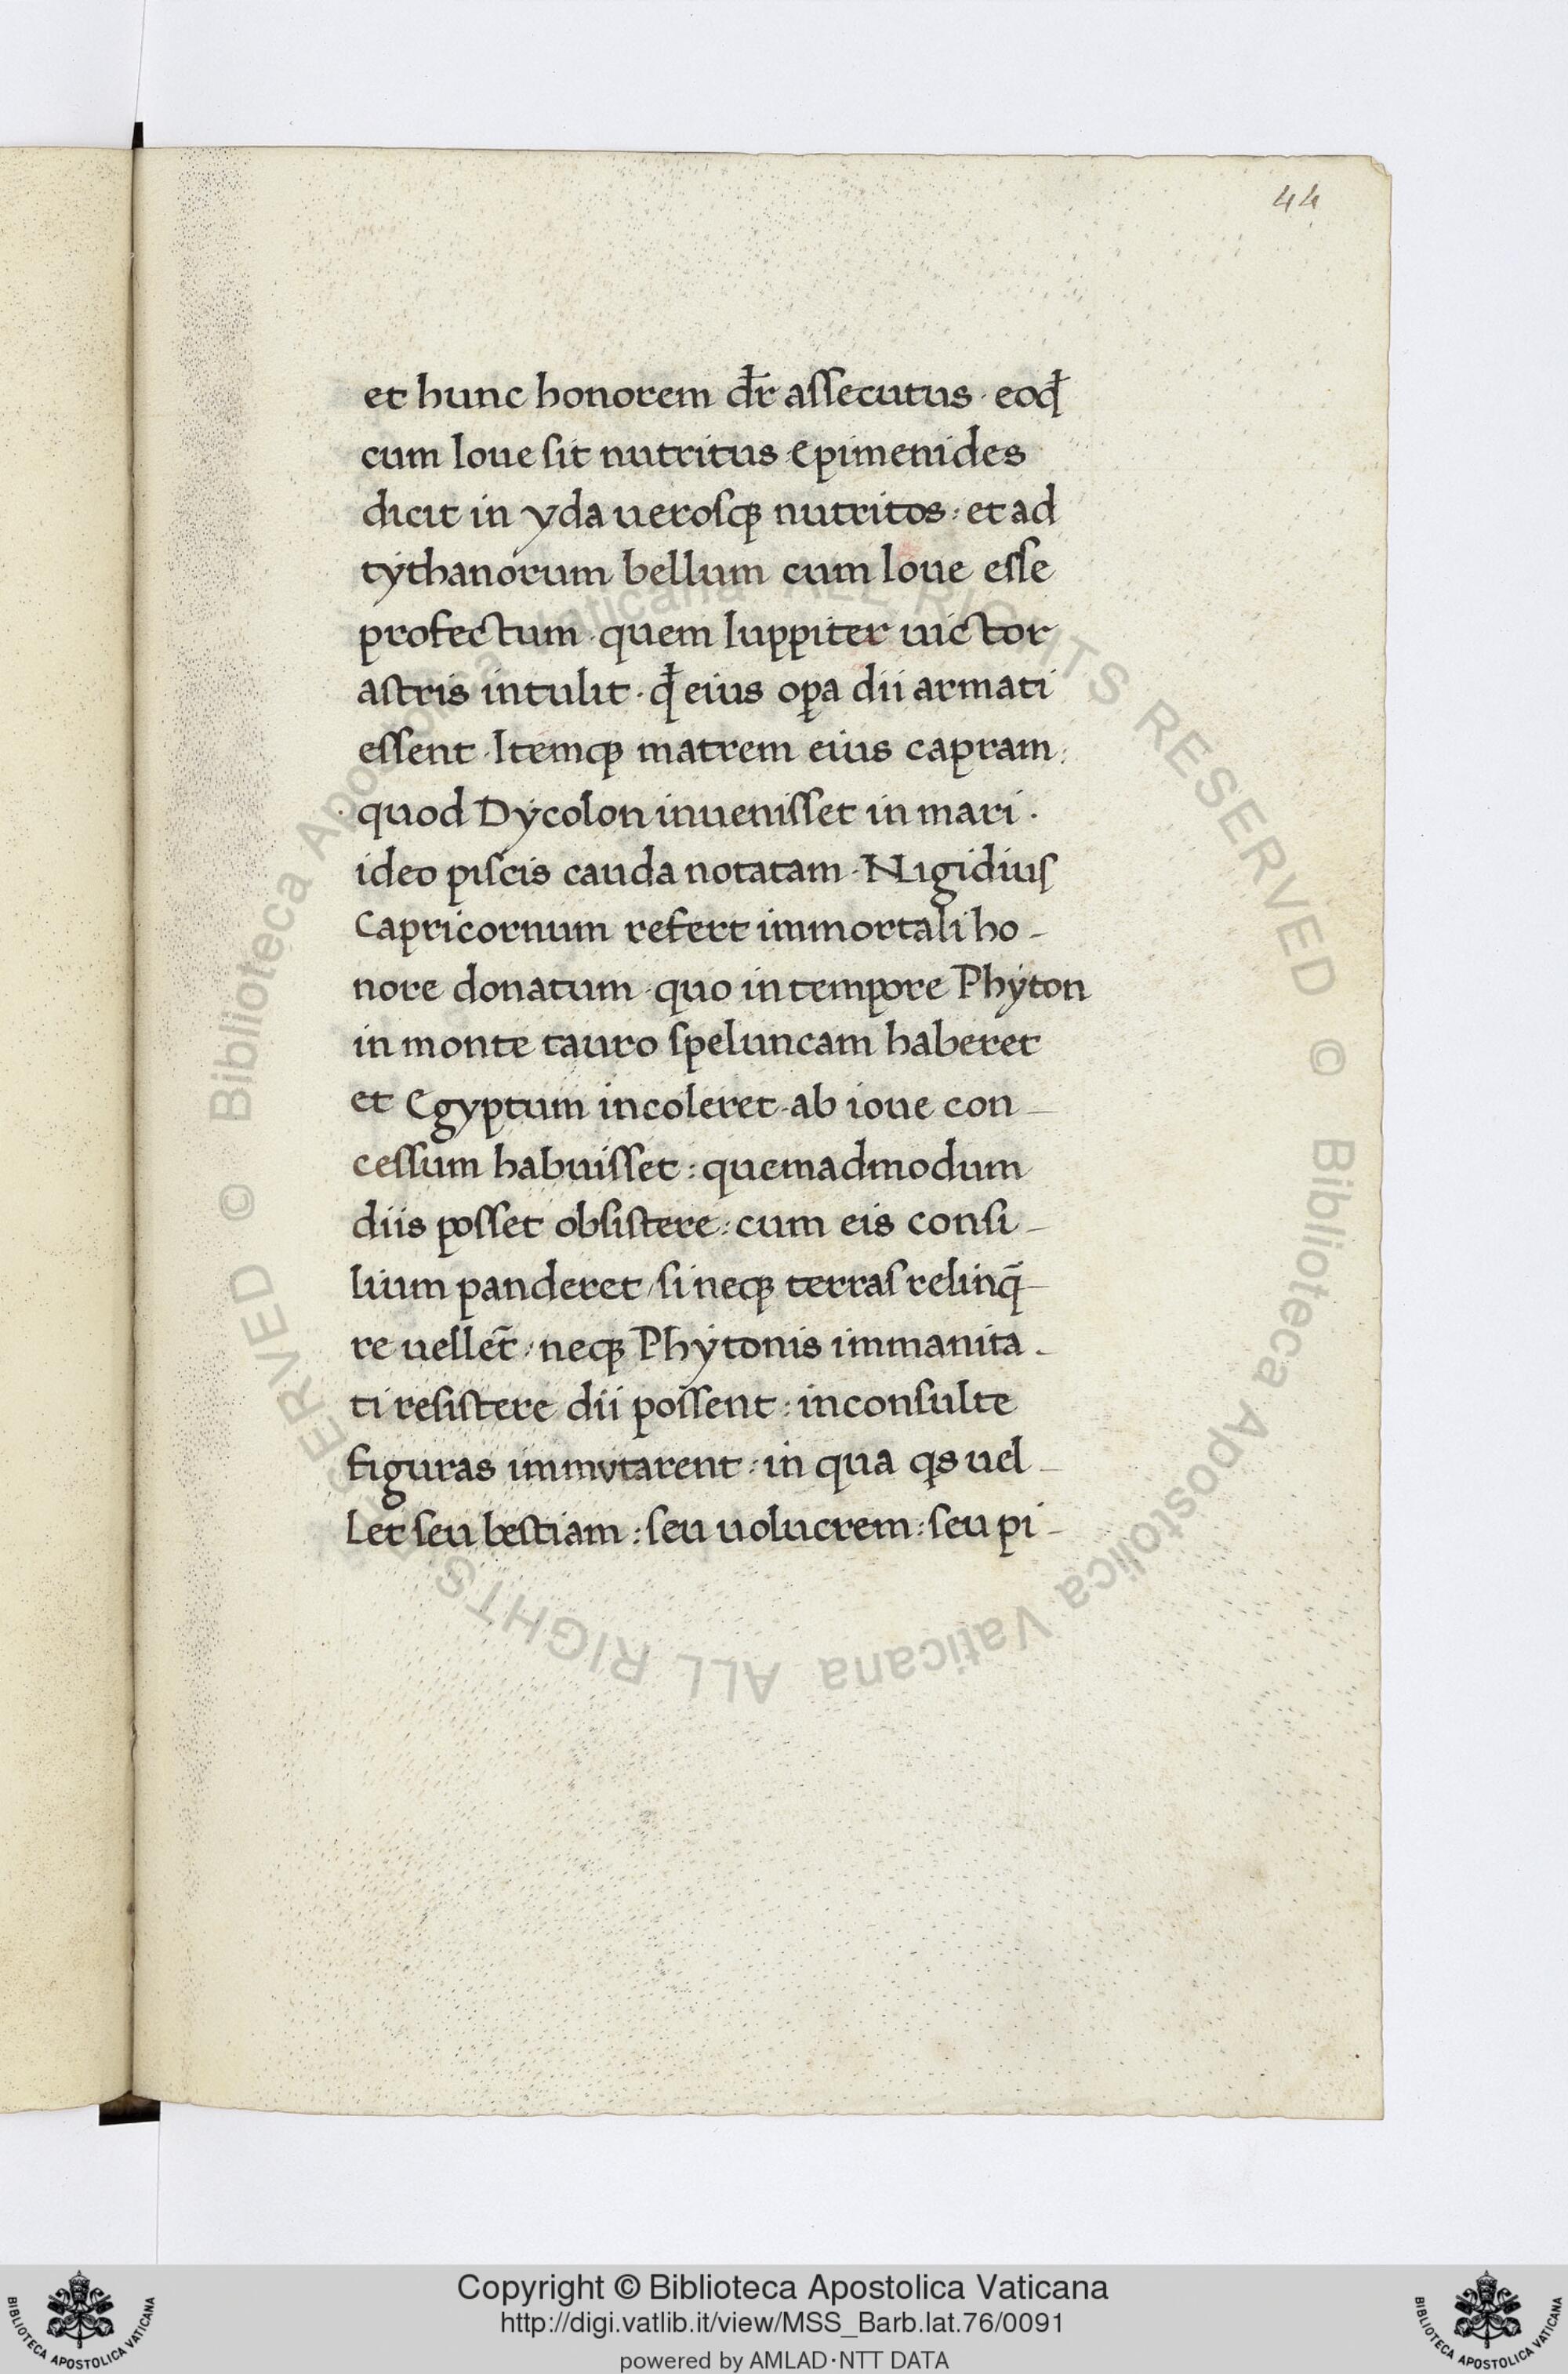 44
et hunc honorem dr̄ aſſecutus · eoq̵
cum Ioue ſit nutritus · Epimenides
dicit in yda ueroſqꝫ nutritos : et ad
tythanorum bellum cum Ioue eſſe
profectum · quem Iuppiter uictor
astris intulit · q̵ eius oꝑa dii armati
eſſent · Itemqꝫ matrem eius capram :
· quod Dycolon inueniſſet in mari ·
ideo piſcis cauda notatam · Nigidiuſ
Capricornum refert immortali ho -
nore donatum · quo in tempore Phyton
in monte tauro ſpeluncam haberet
et Egyptum incoleret · ab ioue con -
ceſſum habuiſſet : quemadmodum
diis poſſet obſiſtere : cum eis conſi -
lium panderet / ſi neqꝫ terraſ relinq̄ -
re uellet̄ : neqꝫ Phytonis immanita -
ti reſiſtere dii poſſent : inconſulte
figuras immvtarent : in qua qs uel -
let ſeu beſtiam : ſeu uolucrem : ſeu pi -
© Biblioteca Apostolica Vaticana ALL RIGHTS RESERVED © Biblioteca Apostolica Vaticana ALL RIGHTS RESERVED
BIBLIOTECA APOSTOLICA VATICANA
Copyright © Biblioteca Apostolica Vaticana
http://digi.vatlib.it/view/MSS_Barb.lat.76/0091
powered by AMLAD·NTT DATA
BIBLIOTECA APOSTOLICA VATICANA